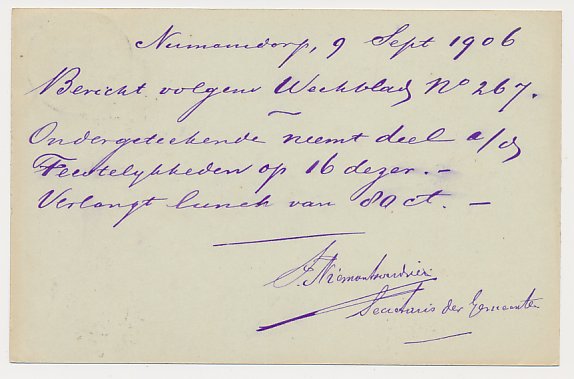 Numansdorp, 9 Sept 1906
Bericht volgens Weekblad No 267.
Ondergeteekende neemt deel a/d
Feestelijkheden op 16 dezer. —
Verlangt lunch van 80 ct. —
Secretaris der Gemeente